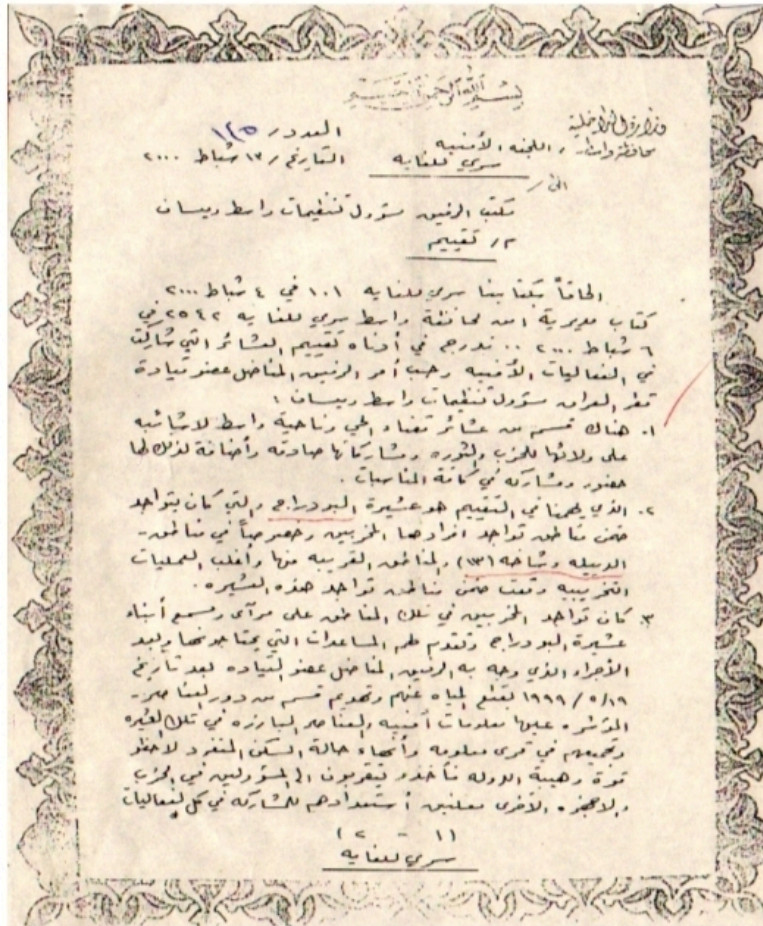 بسم الله الرحمن الرحيم
وزارة الداخلية
محافظة واسط / اللجنة الأمنية
العدد / ١٢٥
سري للغايه
التاريخ / ١٣ شباط ٢٠٠٠
الى /
مكتب الرفيق مسؤول تنظيمات واسط وميسان
م / تقييم
الحاقاً بكتابنا سري للغايه ١٠١ في ٤ شباط ٢٠٠٠
كتاب مديرية امن محافظة واسط سري للغايه ٢٥٤٢ في
٦ شباط ٢٠٠٠ .. ندرج في أدناه تقييم العشائر التي شاركت
في الفعاليات الأمنيه وحسب أمر الرفيق المناضل عضو قيادة
قطر العراق مسؤول تنظيمات واسط وميسان :
١. هناك قسم من عشائر قضاء الحي وناحية واسط لاشائبه
على ولائها للحزب والثوره ومشاركاتها صادقه وأضافة لذلك لها
حضور ومشاركه في كافة المناسبات .
٢. الذي يهمنا في التقييم هو عشيرة البودراج والتي كان يتواجد
ضمن مناطق تواجد افرادها المخربين وخصوصاً في مناطق -
الدبيله وشاخه (١٣) والمناطق القريبه منها وأغلب العمليات
التخريبيه وقعت ضمن مناطق تواجد هذه العشيره .
٣. كان تواجد المخربين في تلك المناطق على مرآى ومسمع أبناء
عشيرة البودراج وتقدم لهم المساعدات التي يحتاجونها وبعد
الأجراء الذي وجه به الرفيق المناضل عضو القياده بعد تاريخ
١٩ / ٥ / ١٩٩٩ بقطع المياه عنهم وتهديم قسم من دور العناصر -
المؤشره عليها معلومات أمنيه والعناصر البارزه في تلك العشيره
وتجميعهم في قرى معلومه وأنهاء حالة السكن المنفرد لاحظو
قوة وهيبة الدوله فأخذو يتقربون الى المسؤولين في الحزب
والاجهزه الأخرى معلنين أستعدادهم للمشاركه في كل الفعاليات
(١ - ٢)
سري للغايه